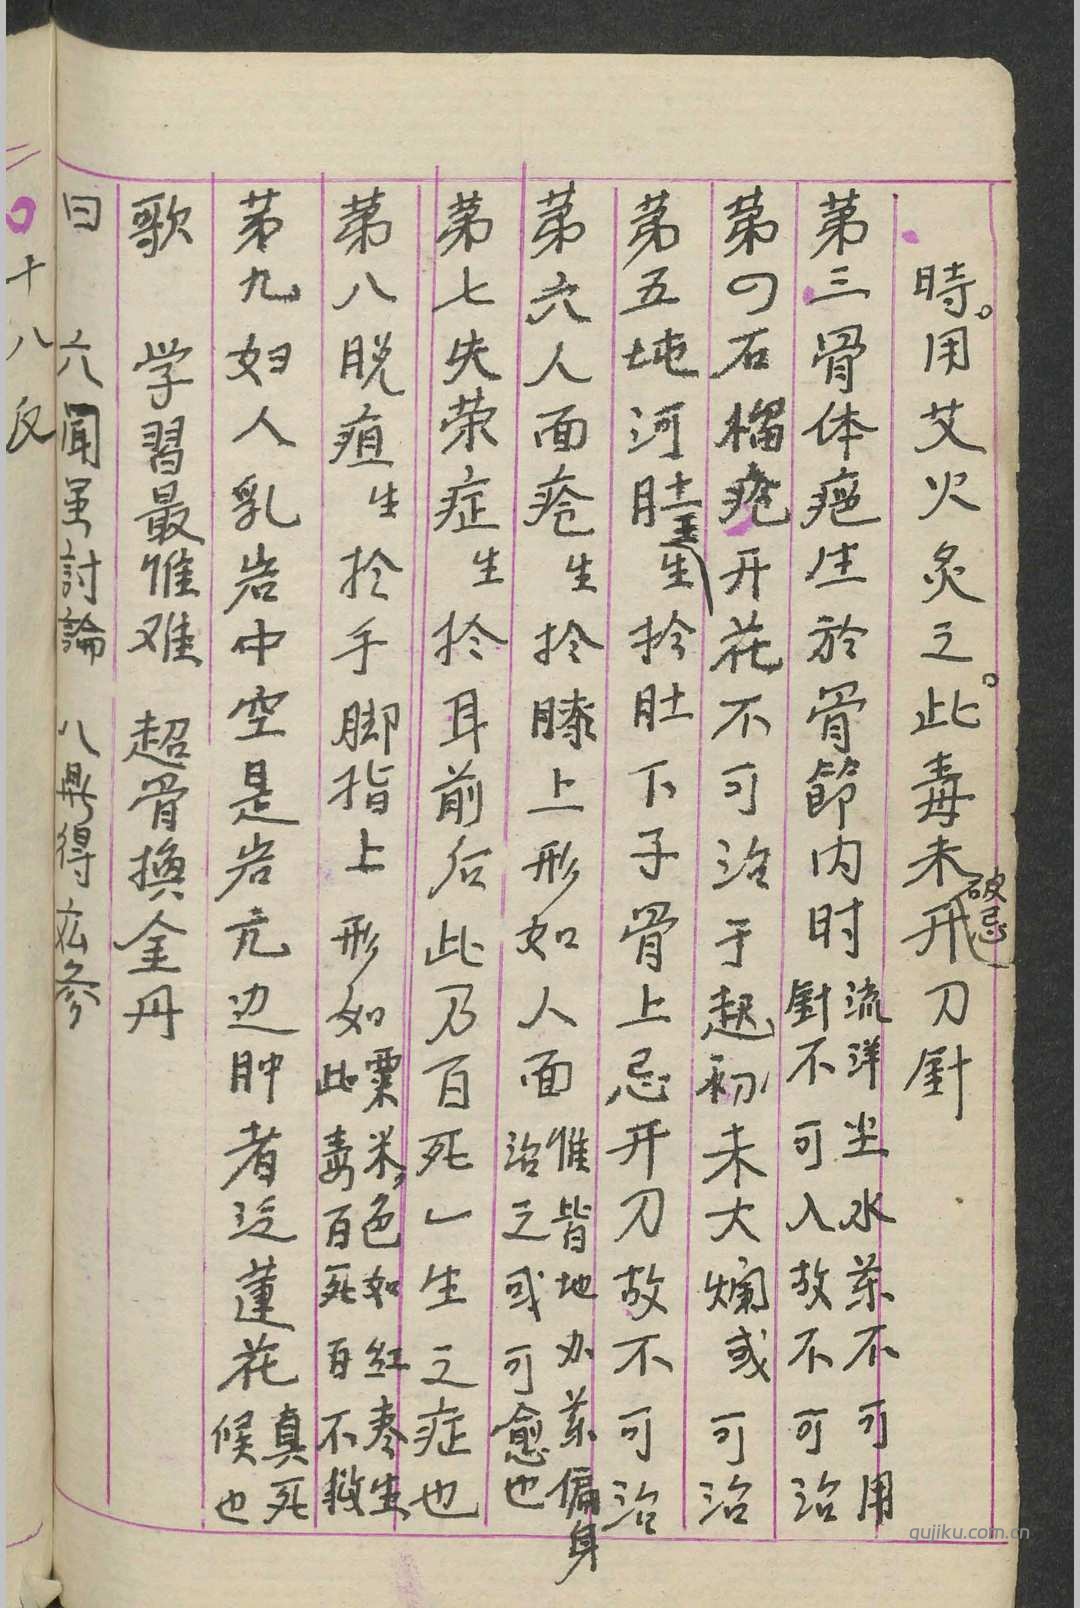 時。用艾火灸之。此毒未破忌开刀針
第三骨体疤生於骨節内时流洋尘水药不可用針不可入故不可治
第四石榴疮开花不可治于起初未大爛或可治
第五坉河肚生於肚下子骨上忌开刀故不可治
第六人面疮生於膝上形如人面惟皆地办药偏身治之或可愈也
第七失荣症生於耳前后此乃百死一生之症也
第八脱疽生於手脚指上形如粟米,色如红枣生此毒百死百不救
第九妇人乳岩中空是岩亢边肿者泛蓮花真死候也
歌 学習最惟难 超骨換金丹
曰 六闻虽討論 八鼎得広参
十八反
qujiku.com.cn